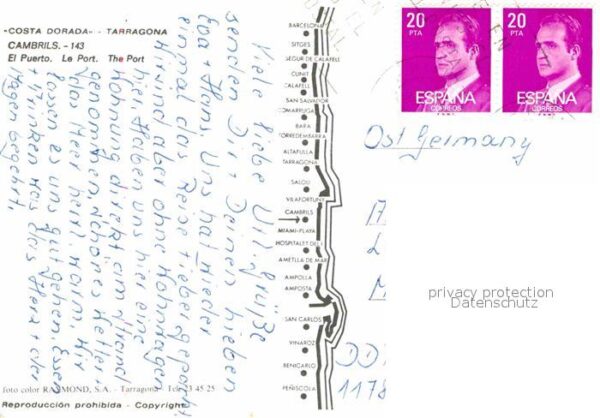 «COSTA DORADA» - TARRAGONA
CAMBRILS. - 143
El Puerto. Le Port. The Port
Viele liebe Url.grüße
senden Dir + Deinen lieben
Eva + Hans. Uns hat wieder
einmal das Reisefieber gepackt.
sind aber ohne Wohnwagen
hier. Haben uns hier
direkt am Strand
genommen. Schönes Wetter
das Meer herrl. warm. Wir
lassen es uns gut gehen. Essen
+ trinken was das Herz + der
Mag. begehrt.
foto color RAYMOND, S.A. - Tarragona - Tel. 23 45 25
Reproducción prohibida - Copyright
BARCELONA
SITGES
SEGUR DE CALAFELL
CUNIT
CALAFELL
SAN SALVADOR
COMARRUGA
BARA
TORREDEMBARRA
ALTAFULLA
TARRAGONA
SALOU
VILAFORTUNY
CAMBRILS
MIAMI-PLAYA
HOSPITALET DEL I.
AMETLLA DE MAR
AMPOLLA
AMPOSTA
SAN CARLOS
VINAROZ
BENICARLO
PEÑISCOLA
20 PTA
ESPAÑA
CORREOS
20 PTA
ESPAÑA
CORREOS
Ost Germany
DD
1178
privacy protection
Datenschutz